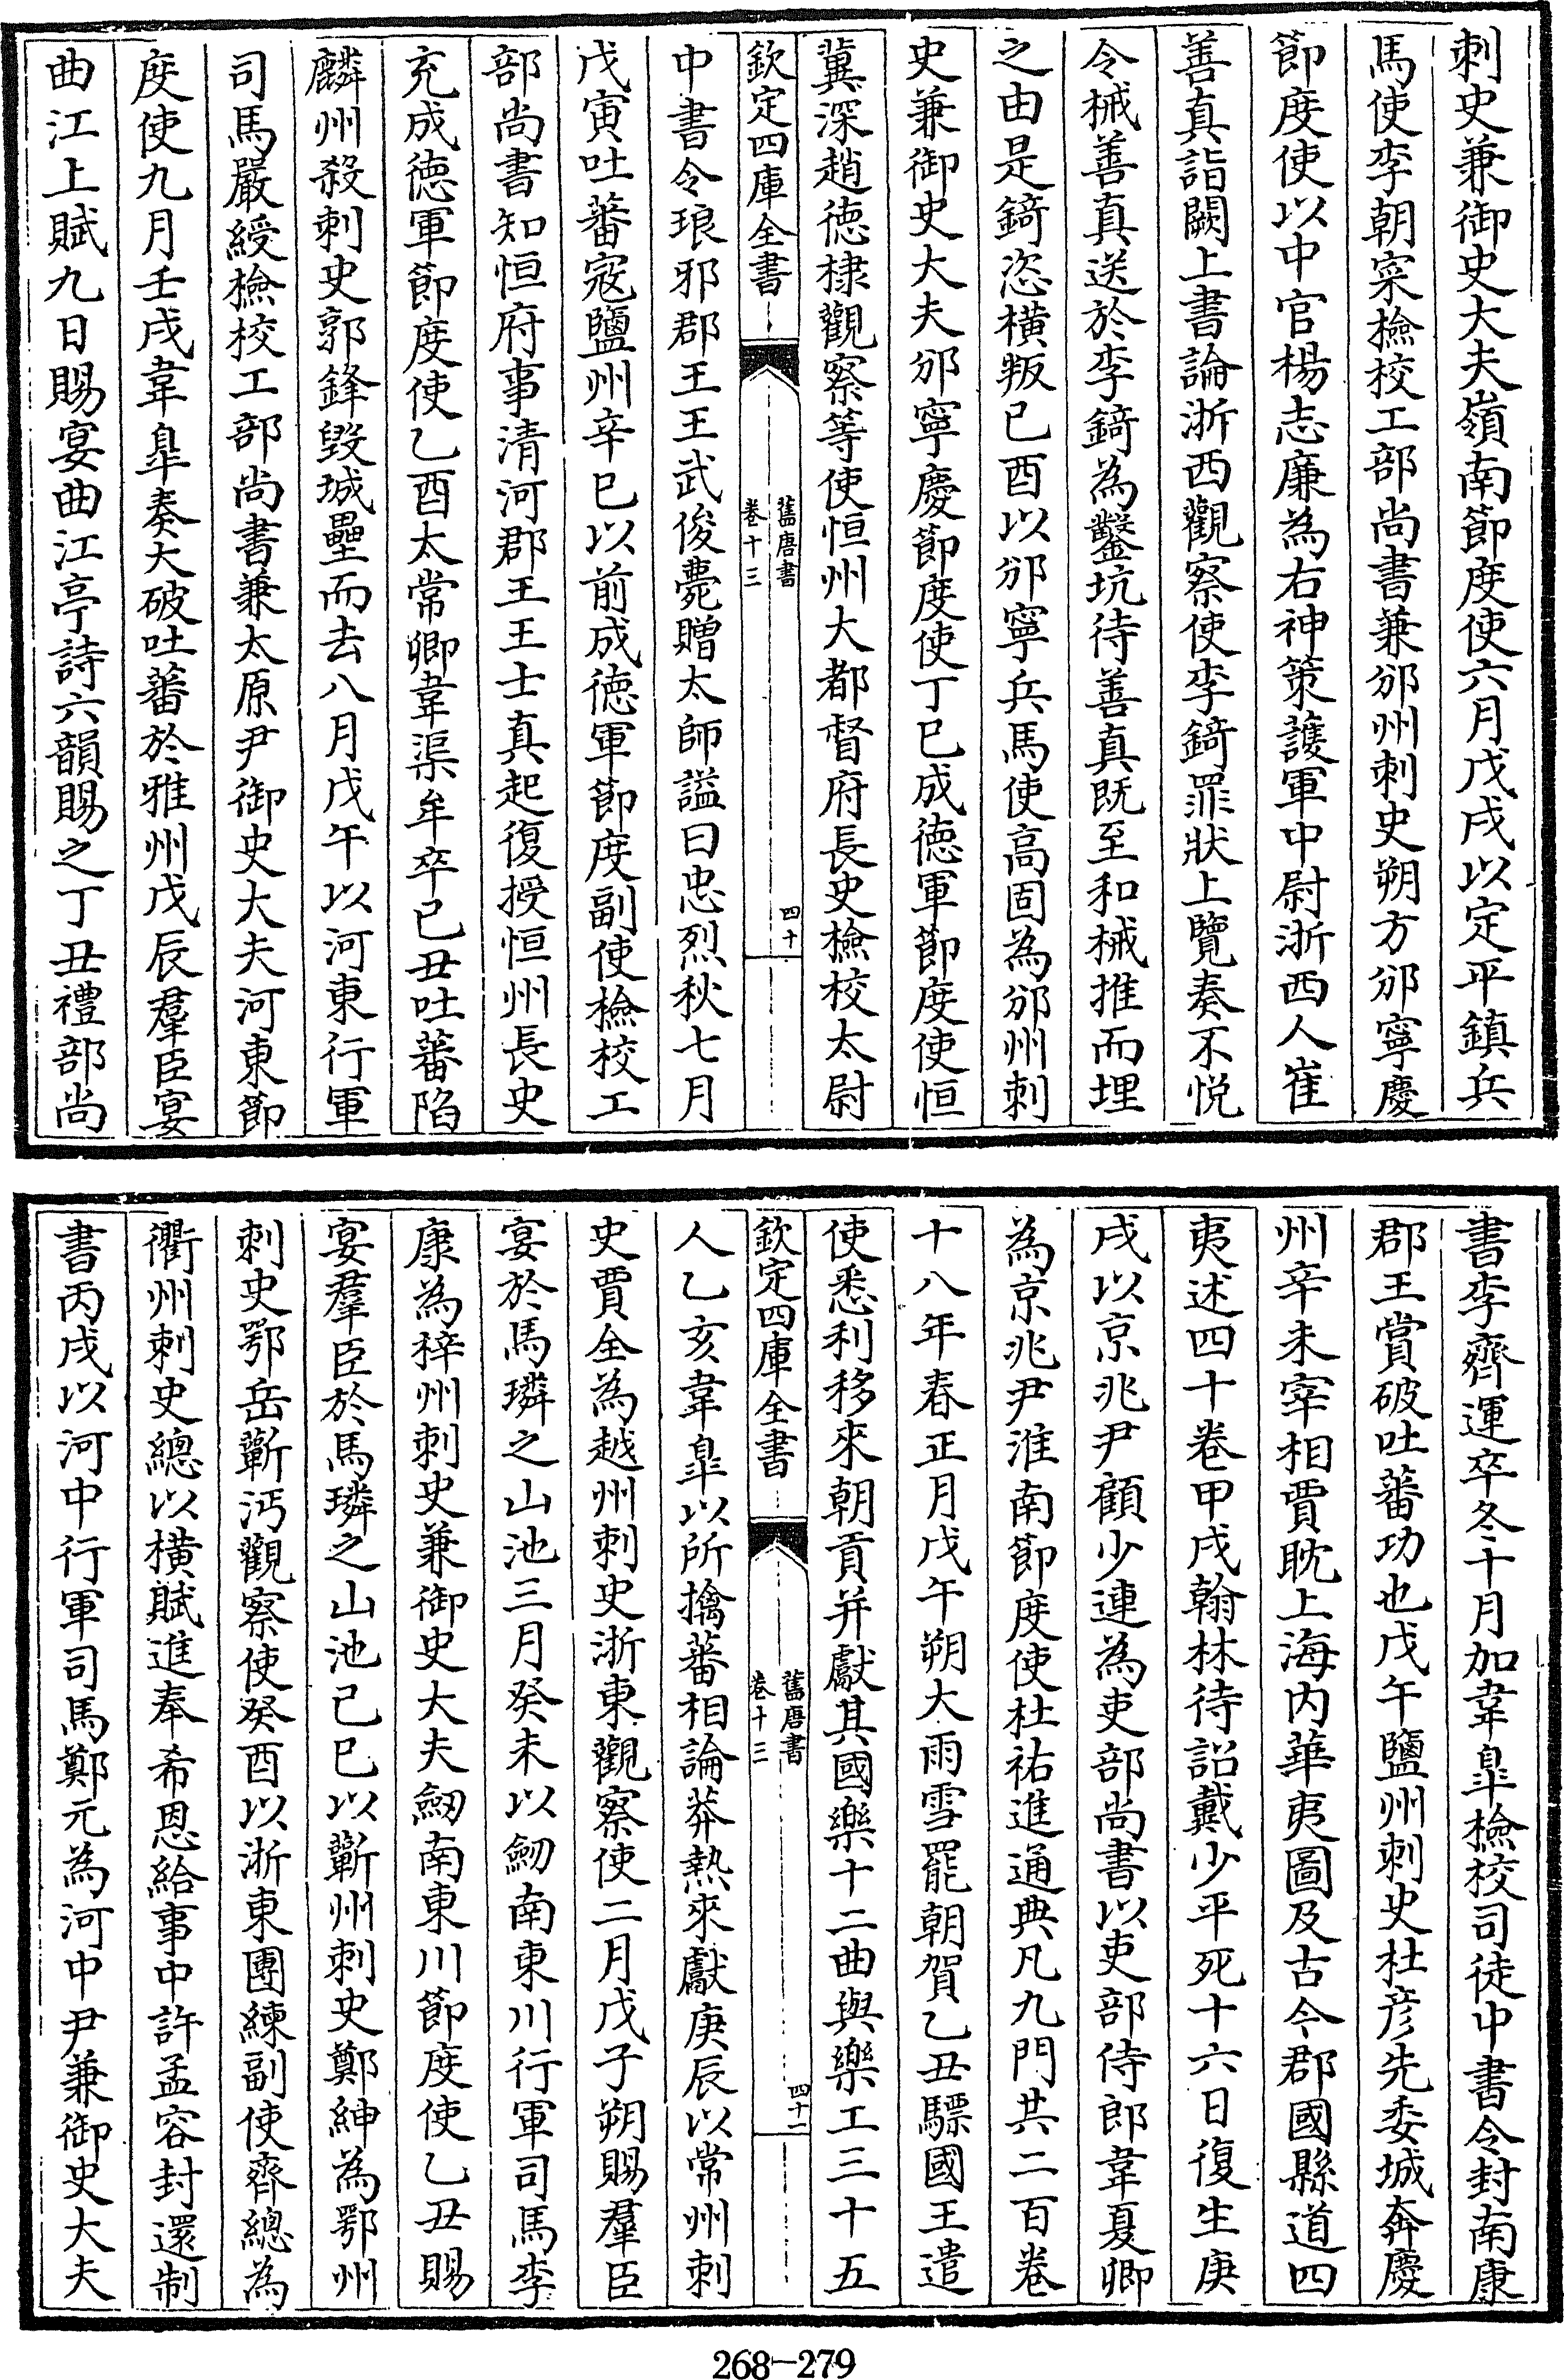 刺史兼御史大夫嶺南節度使六月戊戌以定平鎮兵
馬使李朝寀檢校工部尚書兼邠州刺史朔方邠寧慶
節度使以中官楊志廉為右神策護軍中尉浙西人崔
善真詣闕上書論浙西觀察使李錡罪狀上覽奏不悅
令械善真送於李錡為鑿坑待善真既至和械推而埋
之由是錡恣橫叛已酉以邠寧兵馬使高固為邠州刺
史兼御史大夫邠寧慶節度使丁巳成德軍節度使恒
冀深趙德棣觀察等使恒州大都督府長史檢校太尉
欽定四庫全書
舊唐書
卷十三
四十
中書令琅邪郡王王武俊薨贈太師謚曰忠烈秋七月
戊寅吐蕃寇鹽州辛巳以前成德軍節度副使檢校工
部尚書知恒府事清河郡王王士真起復授恒州長史
充成德軍節度使乙酉太常卿韋渠牟卒已丑吐蕃陷
麟州殺刺史郭鋒毀城壘而去八月戊午以河東行軍
司馬嚴綬檢校工部尚書兼太原尹御史大夫河東節
度使九月壬戌韋臯奏大破吐蕃於雅州戊辰羣臣宴
曲江上賦九日賜宴曲江亭詩六韻賜之丁丑禮部尚
書李齊運卒冬十月加韋臯檢校司徒中書令封南康
郡王賞破吐蕃功也戊午鹽州刺史杜彥先委城奔慶
州辛未宰相賈耽上海內華夷圖及古今郡國縣道四
夷述四十卷甲戌翰林待詔戴少平死十六日復生庚
戌以京兆尹顧少連為吏部尚書以吏部侍郎韋夏卿
為京兆尹淮南節度使杜祐進通典凡九門共二百卷
十八年春正月戊午朔大雨雪罷朝賀乙丑驃國王遣
使悉利移來朝貢并獻其國樂十二曲與樂工三十五
欽定四庫全書
舊唐書
卷十三
四十一
人乙亥韋臯以所擒蕃相論莽熱來獻庚辰以常州刺
史賈全為越州刺史浙東觀察使二月戊子朔賜羣臣
宴於馬璘之山池三月癸未以劒南東川行軍司馬李
康為梓州刺史兼御史大夫劒南東川節度使乙丑賜
宴羣臣於馬璘之山池己巳以蘄州刺史鄭紳為鄂州
刺史鄂岳蘄沔觀察使癸酉以浙東團練副使齊總為
衢州刺史總以橫賦進奉希恩給事中許孟容封還制
書丙戌以河中行軍司馬鄭元為河中尹兼御史大夫
268-279